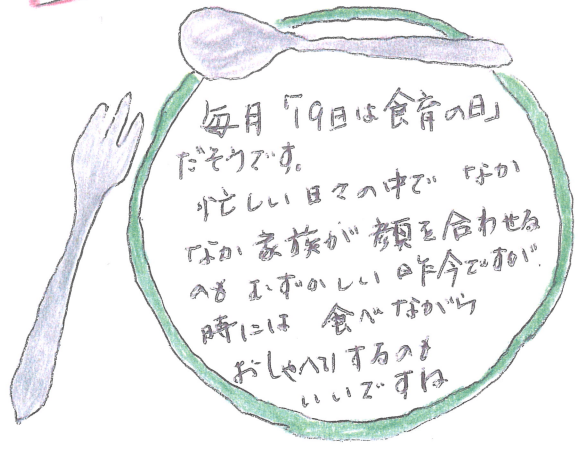 毎月「19日は食育の日」
だそうです。
忙しい日々の中で なか
なか 家族が 顔を合わせる
のも むずかしい 昨今ですが、
時には 食べながら
おしゃべりするのも
いいですね